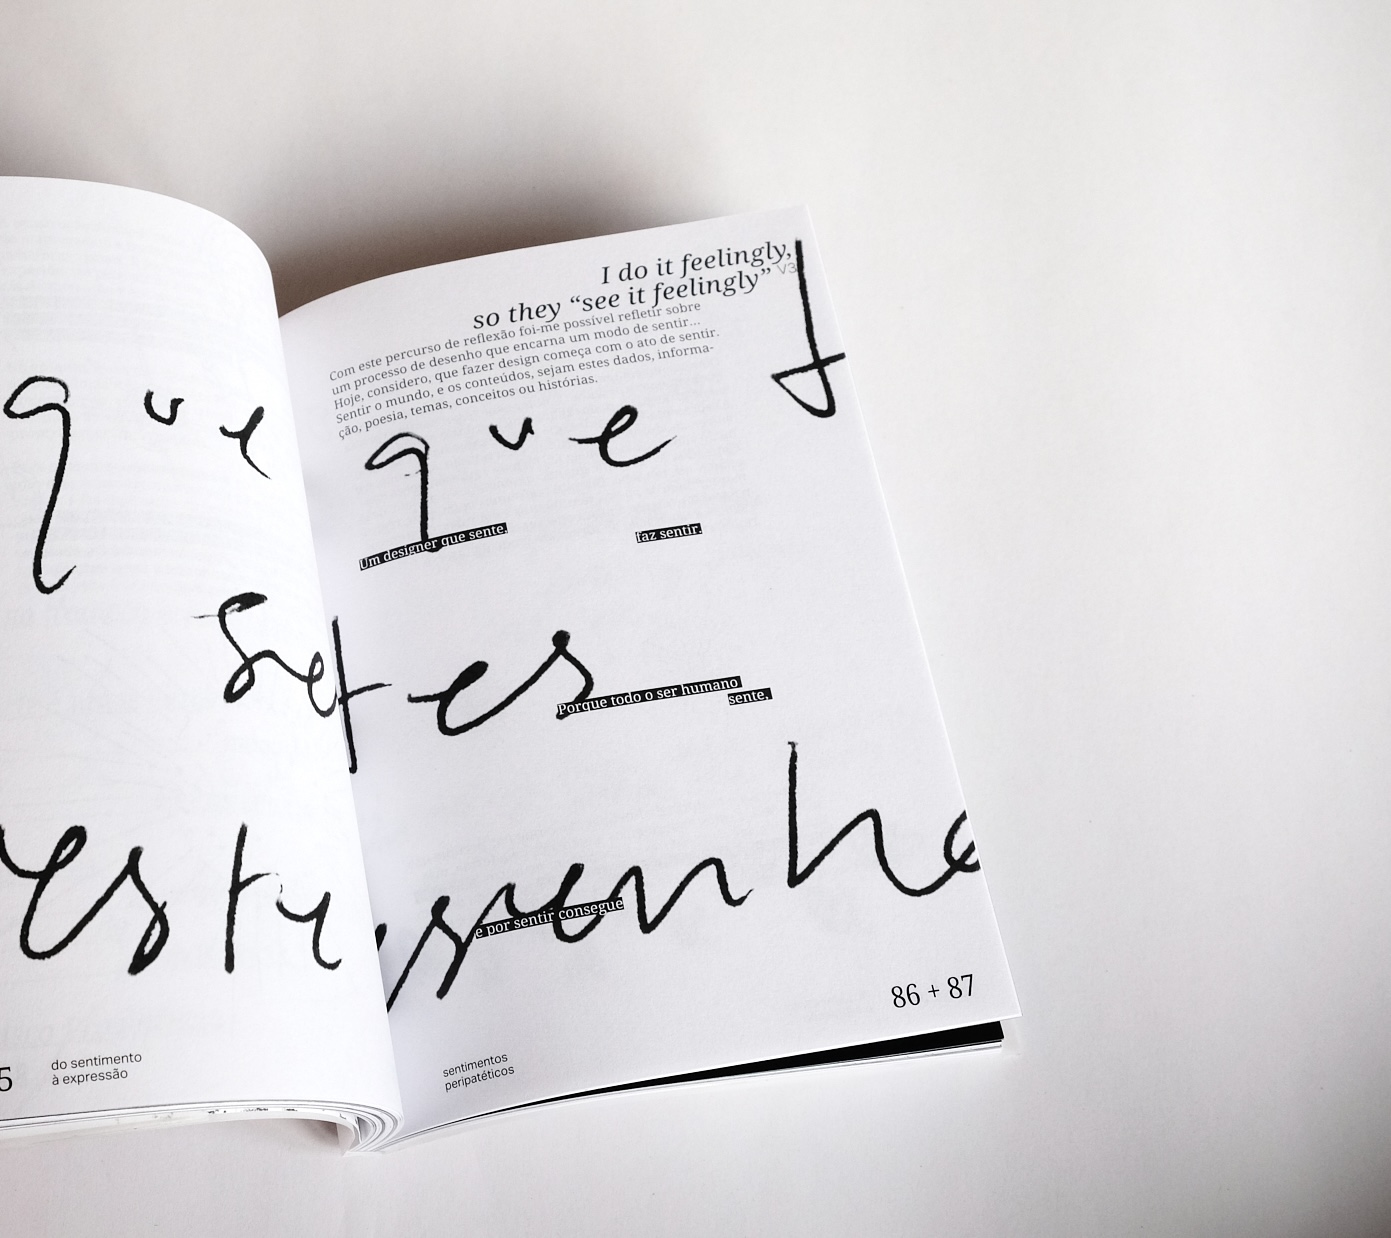 que
5
do sentimento
à expressão
I do it feelingly,
so they “see it feelingly” V3
Com este percurso de reflexão foi-me possível refletir sobre
um processo de desenho que encarna um modo de sentir...
Hoje, considero, que fazer design começa com o ato de sentir.
Sentir o mundo, e os conteúdos, sejam estes dados, informa-
ção, poesia, temas, conceitos ou histórias.
que
Um designer que sente,
faz sentir.
Porque todo o ser humano
sente,
e por sentir consegue
86 + 87
sentimentos
peripatéticos